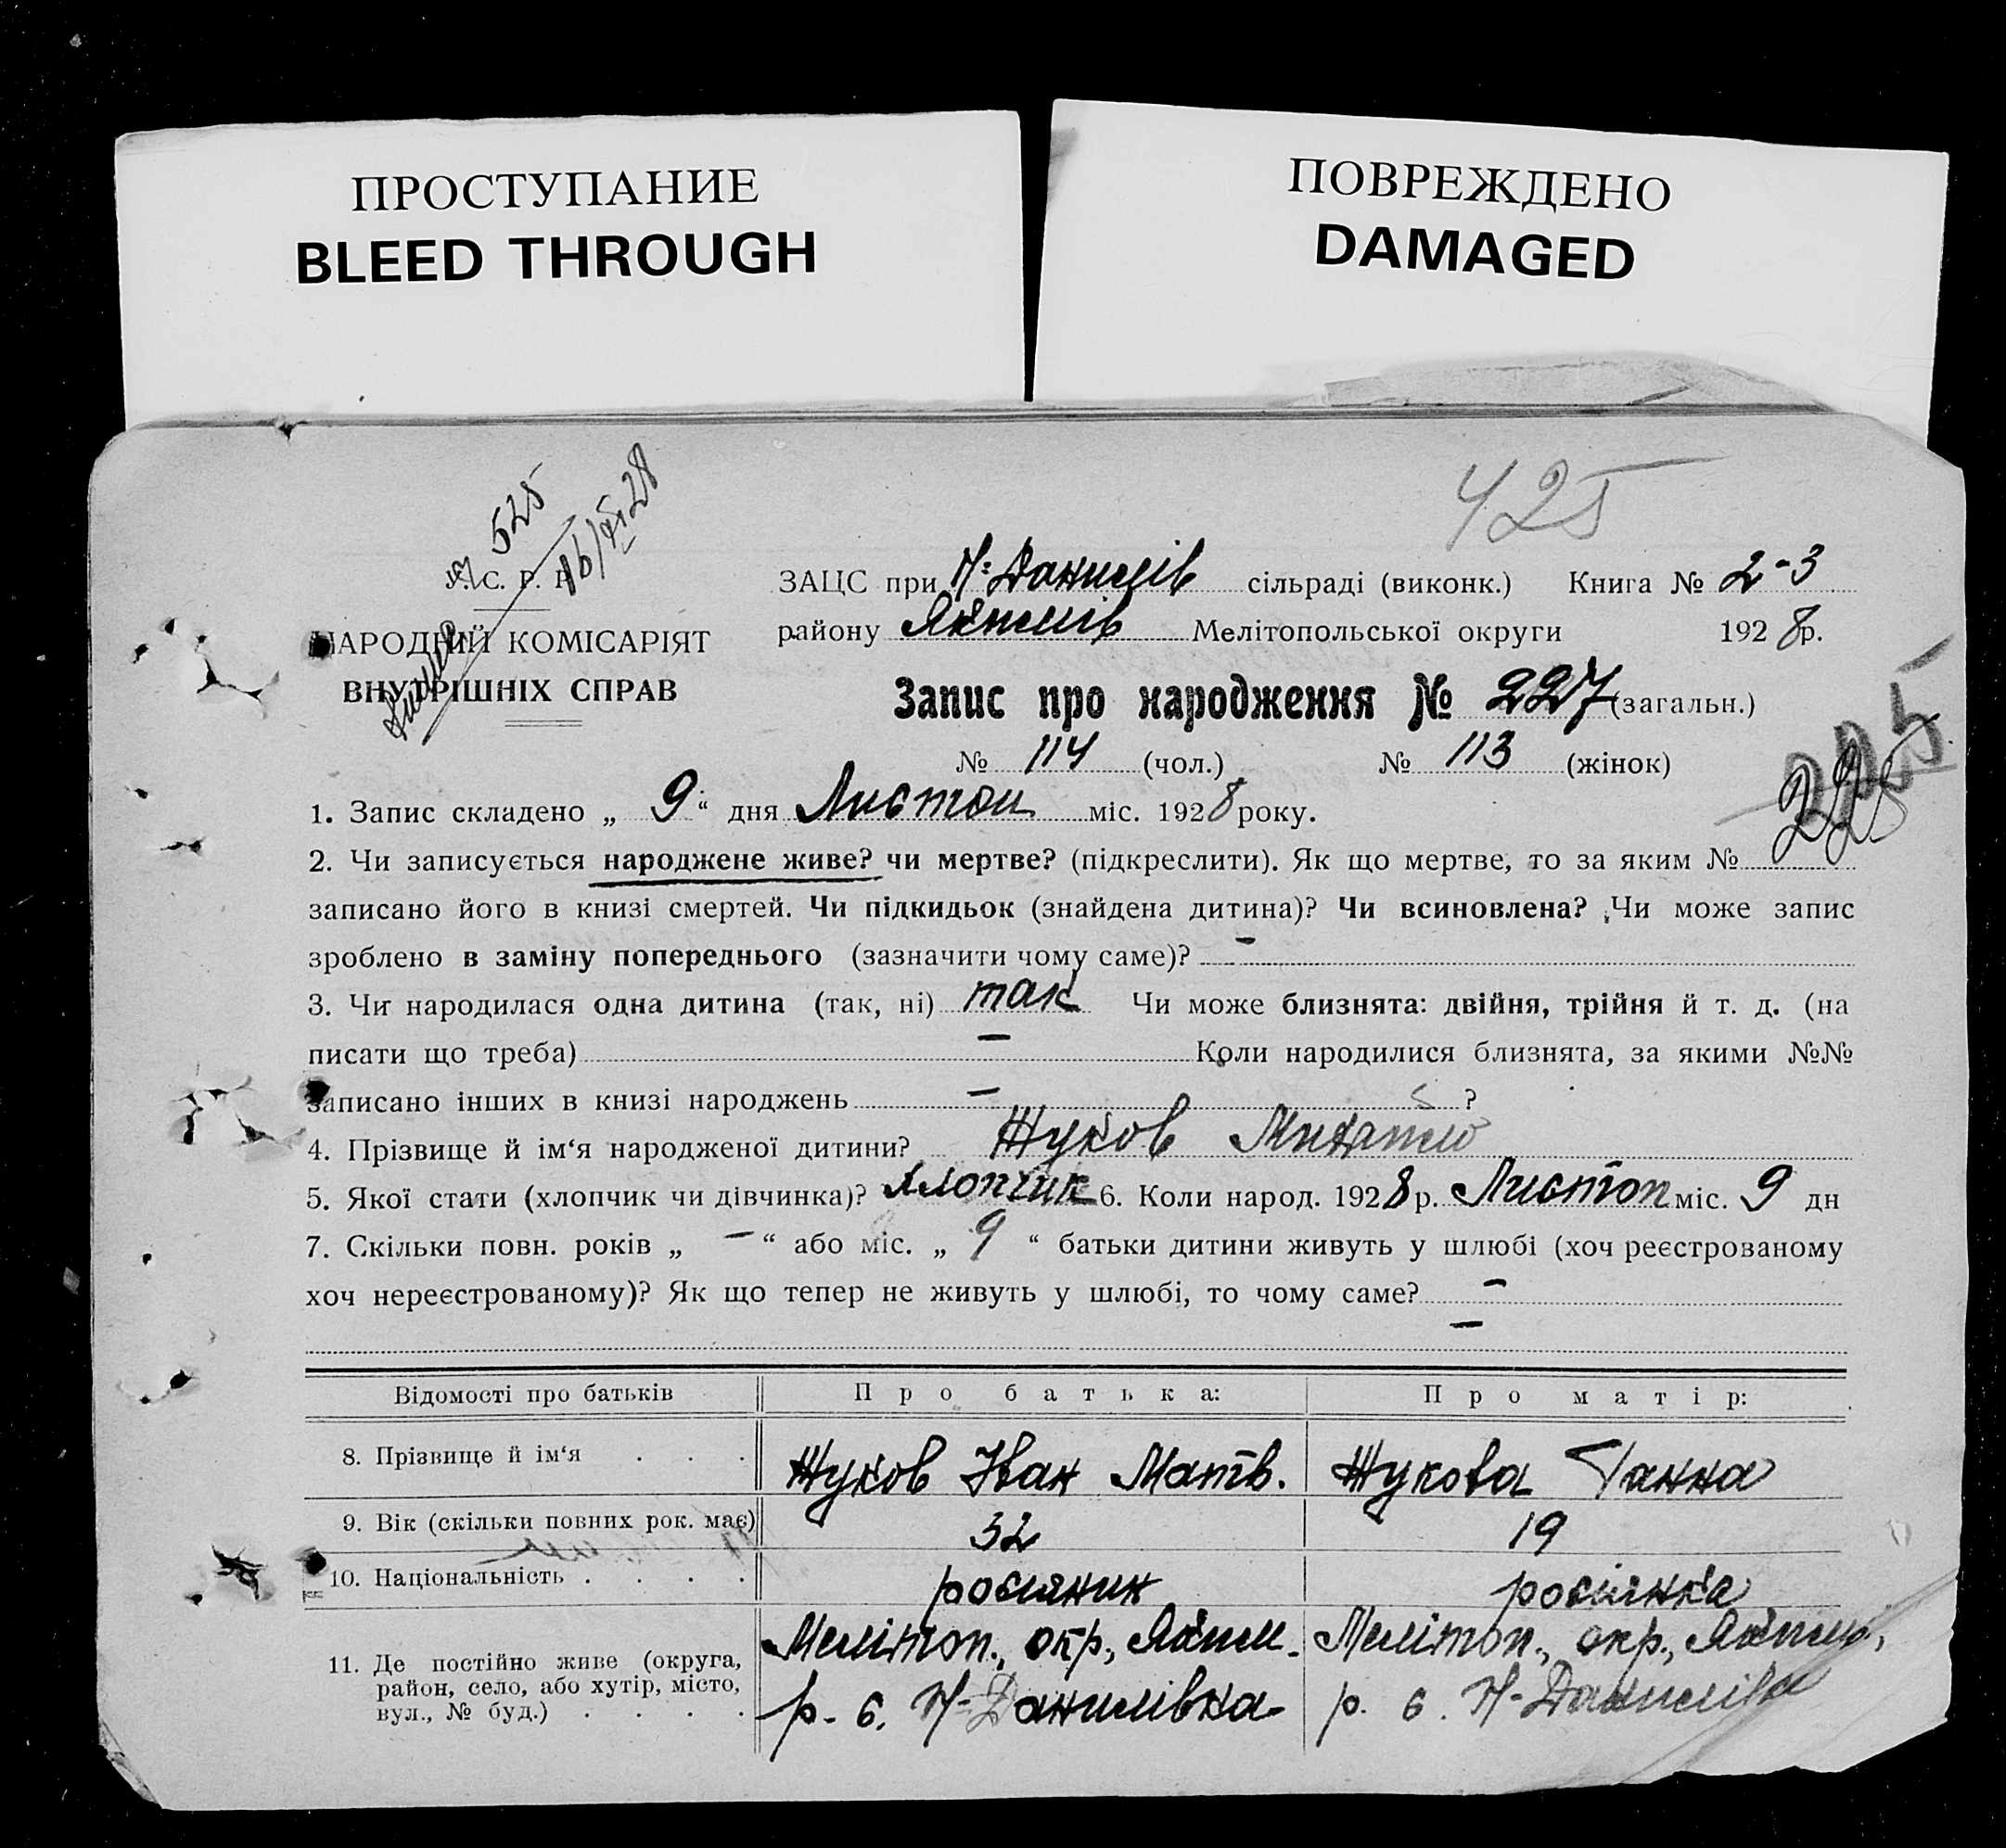 ПРОСТУПАНИЕ
BLEED THROUGH
ПОВРЕЖДЕНО
DAMAGED
425
№ 525
16/XI 28
У. С. Р. Р.
НАРОДНИЙ КОМІСАРІЯТ
ВНУТРІШНІХ СПРАВ
ЗАЦС при Н-Данилів сільраді (виконк.) Книга № 2-3
району Якимів Мелітопольської округи 1928р.
Запис про народження № 227 (загальн.)
№ 114 (чол.) № 113 (жінок)
225
1. Запис складено „ 9 “ дня Листоп міс. 1928 року.
2. Чи записується народжене живе? чи мертве? (підкреслити). Як що мертве, то за яким №
записано його в книзі смертей. Чи підкидьок (знайдена дитина)? Чи всиновлена? Чи може запис
зроблено в заміну попереднього (зазначити чому саме)? –
3. Чи народилася одна дитина (так, ні) так Чи може близнята: двійня, трійня й т. д. (на
писати що треба) – Коли народилися близнята, за якими №№
записано інших в книзі народжень – ?
4. Прізвище й ім‘я народженої дитини? Жуков Михайло
5. Якої стати (хлопчик чи дівчинка)? Хлопчик 6. Коли народ. 1928 р. Листоп міс. 9 дн
7. Скільки повн. років „ – “ або міс. „ 9 “ батьки дитини живуть у шлюбі (хоч реєстрованому
хоч нереєстрованому)? Як що тепер не живуть у шлюбі, то чому саме? –
–
Відомості про батьків Про батька: Про матір:
8. Прізвище й ім‘я . . . Жуков Іван Матв. Жукова Ганна
9. Вік (скільки повних рок. має) 32 19
10. Національність . . . . росіянин росіянка
11. Де постійно живе (округа, Меліточ., окр., Яким. Меліточ., окр., Яким.,
район, село, або хутір, місто, р. с. Н-Данилівка р. с. Н-Данилівка
вул., № буд.) . . . .